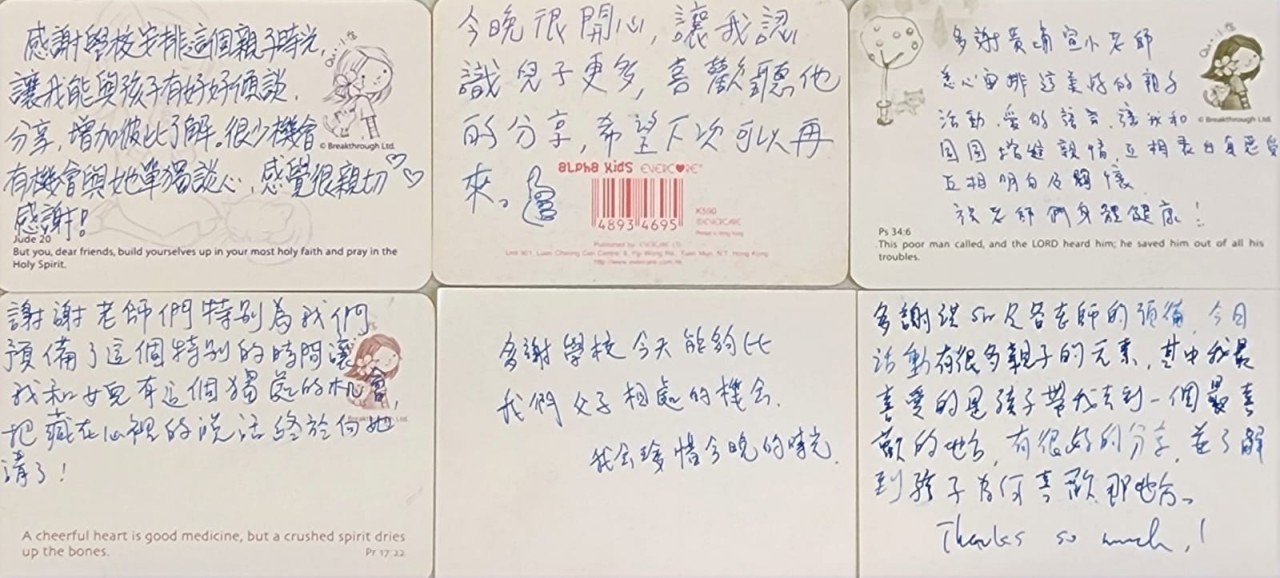 感謝學校安排這個親子時光,
讓我能與孩子有好好傾談,
分享,增加彼此了解。很少機會
有機會與她單獨談心,感覺很親切♡♡
感謝!
Qu-i-is
© Breakthrough Ltd.
Jude 20
But you, dear friends, build yourselves up in your most holy faith and pray in the
Holy Spirit.
今晚很開心,讓我認
識兒子更多,喜歡聽他
的分享,希望下次可以再
來。
alpha kids EVERC♥RE™
4893 4695
K590
©EVERCARE
Printed in Hong Kong
Published by: EVERCARE LTD.
Unit 901, Luen Cheong Can Centre, 8, Yip Wong Rd., Tuen Mun, N.T. Hong Kong
http://www.evercare.com.hk
多謝黃宣小老師
悉心安排這美好的親子
活動,愛的語言,讓我和
囝囝增進親情,互相表白
互相明白及關懷
祝老師們身體健康!!
© Breakthrough Ltd.
Ps 34:6
This poor man called, and the LORD heard him; he saved him out of all his
troubles.
謝謝老師們特別為我們
預備了這個特別的時間讓
我和女兒有這個獨處的机會,
把藏在心裡的說話終於向她
講了!
A cheerful heart is good medicine, but a crushed spirit dries
up the bones.
Pr 17:22
多謝學校今天能夠比
我們父子相處的機会.
我会珍惜今晚的時光.
多謝 Sir 及各老師的預備,今日
活動有很多親子的元素,其中我最
喜愛的是孩子帶我去到一個最喜
歡的地方,有很好的分享,並了解
到孩子為何喜歡那地方。
Thanks so much,!